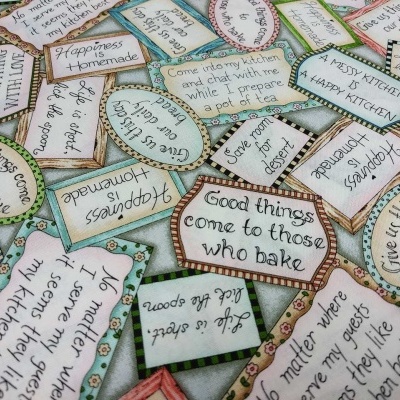 No matter w
I serve my
it seems they
my kitchen b
Give us this day
our daily
bread
come
to my
kitchen
Happiness
is
Homemade
Happiness
is
Homemade
Give us
our
Come into my kitchen
and chat with me
while I prepare
a pot of tea
A MESSY KITCHEN
IS
A HAPPY KITCHEN
Life is short.
lick the spoon
Give us this day
our daily
bread
Save room
for
dessert
Happiness
is
Homemade
Happiness
is
Homemade
Give us th
Good things
come to those
who bake
Life is short.
lick the spoon
No matter wher
I serve my gues
it seems they like
my kitchen
No matter where
serve my guests
ms they like
hen be